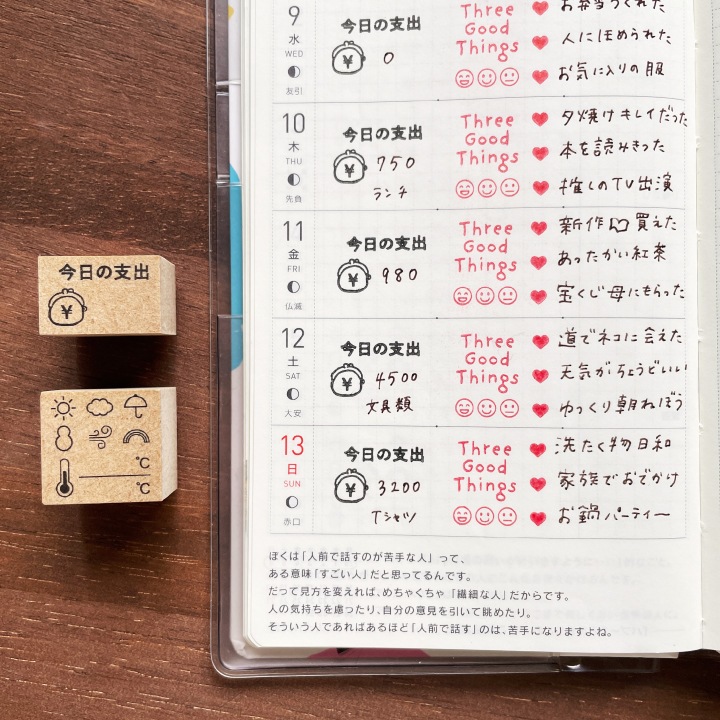 9
水
WED
友引
今日の支出
¥
0
Three
Good
Things
お弁当つくれた
人にほめられた
お気に入りの服
10
木
THU
先負
今日の支出
¥
750
ランチ
Three
Good
Things
夕焼けキレイだった
本を読みきった
推しのTV出演
11
金
FRI
仏滅
今日の支出
¥
980
Three
Good
Things
新作 買えた
あったかい紅茶
宝くじ母にもらった
12
土
SAT
大安
今日の支出
¥
4500
文具類
Three
Good
Things
道でネコに会えた
天気がちょうどいい
ゆっくり朝ねぼう
13
日
SUN
赤口
今日の支出
¥
3200
Tシャツ
Three
Good
Things
洗たく物日和
家族でおでかけ
お鍋パーティー
ぼくは「人前で話すのが苦手な人」って、
ある意味「すごい人」だと思ってるんです。
だって見方を変えれば、めちゃくちゃ「繊細な人」だからです。
人の気持ちを慮ったり、自分の意見を引いて眺めたり。
そういう人であればあるほど「人前で話す」のは、苦手になりますよね。
今日の支出
¥
℃
℃